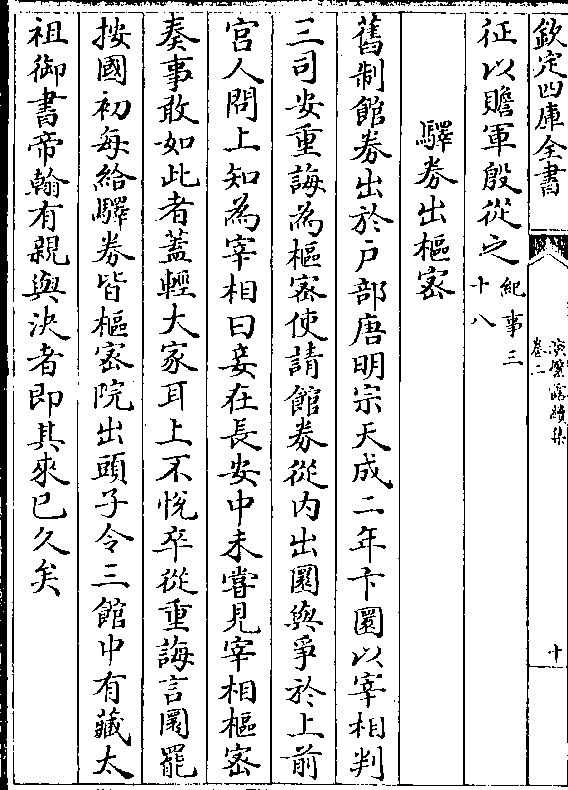 欽定四庫全書
演繁露續集
卷二
十
征以贍軍殷從之紀事三
十八
驛券出樞宻
舊制館券出於戸部唐明宗天成二年卞圜以宰相判
三司安重誨為樞宻使請館券從内出圜與爭於上前
宫人問上知為宰相曰妾在長安中未嘗見宰相樞宻
奏事敢如此者蓋輕大家耳上不悦卒從重誨言圜罷
按國初每給驛券皆樞宻院出頭子令三館中有藏太
祖御書帝翰有親與決者即其來已久矣